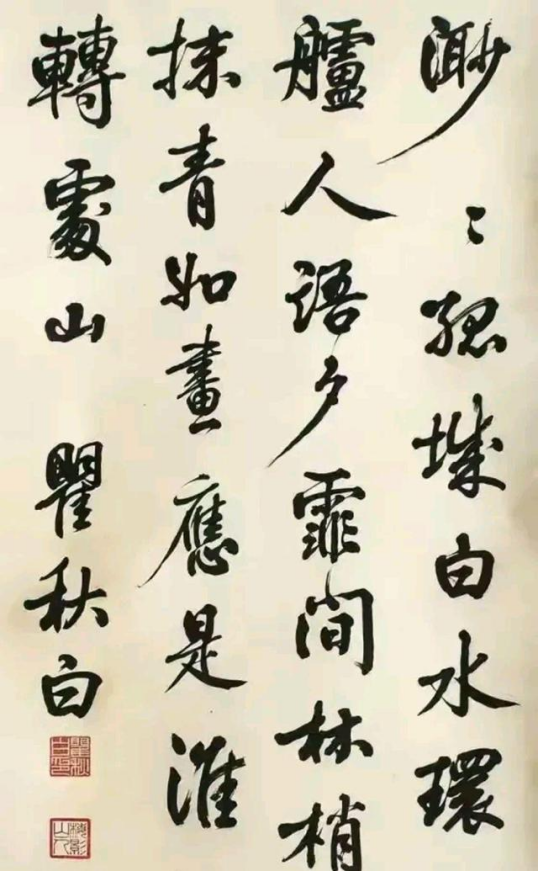 渺〻孤城白水環
艫人語夕霏間林梢
抹青如畫應是淮
轉處山 瞿秋白